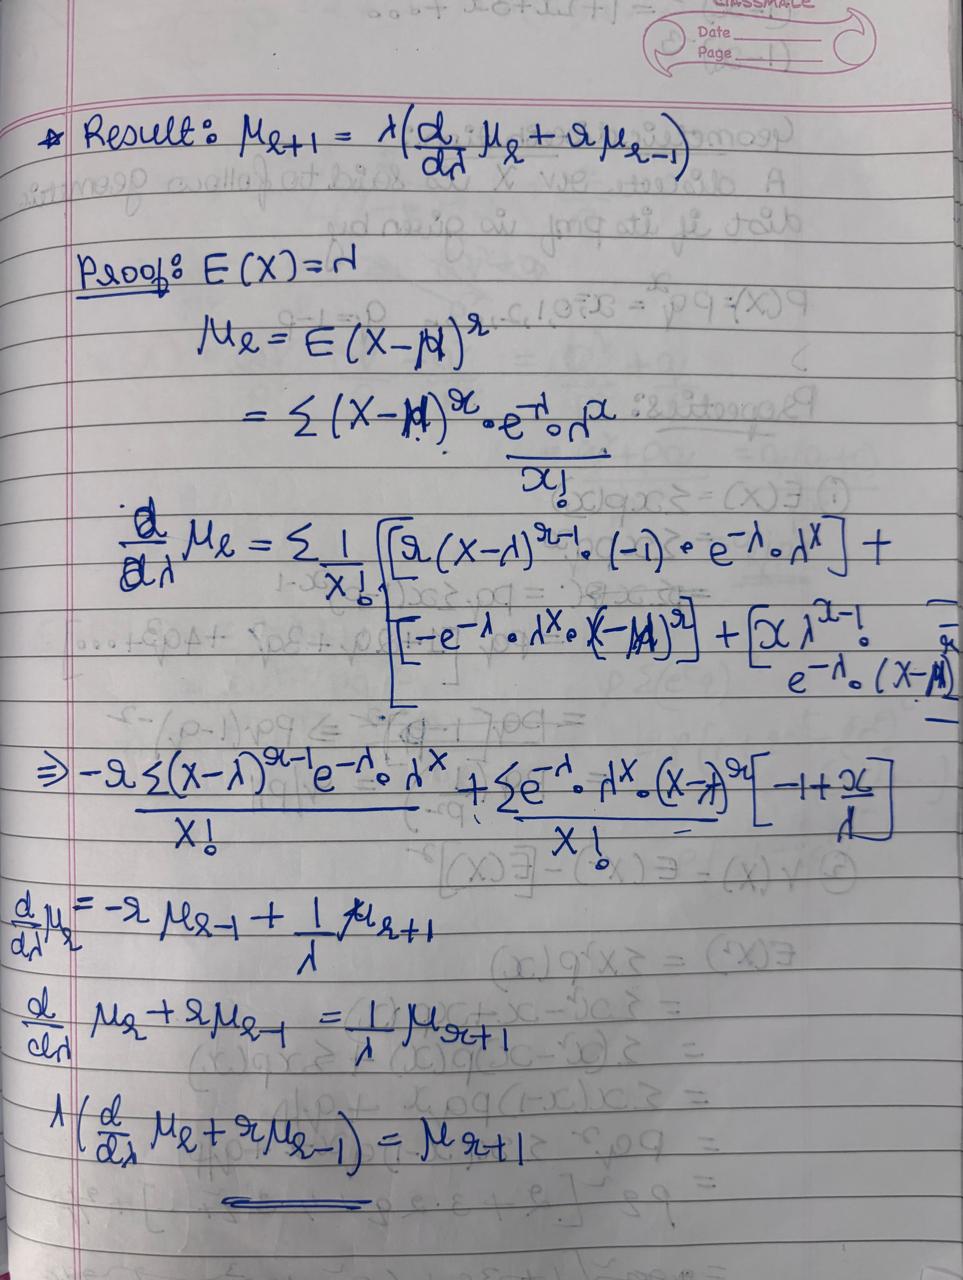 CLASSMATE
Date
Page
* Result: μr+1 = λ(d/dλ μr + r μr-1)
Proof: E(X) = λ
μr = E(X-λ)^r
= Σ (X-λ)^r · e^-λ · λ^x / x!
d/dλ μr = Σ 1/x! [[r(x-λ)^r-1 · (-1) · e^-λ · λ^x] +
[-e^-λ · λ^x · (x-λ)^r] + [x λ^x-1 ·
e^-λ · (x-λ)^r]]
⇒ -r Σ(x-λ)^r-1 e^-λ · λ^x / x! + Σ e^-λ · λ^x · (x-λ)^r / x! [-1 + x/λ]
d/dλ μr = -r μr-1 + 1/λ μr+1
d/dλ μr + r μr-1 = 1/λ μr+1
λ(d/dλ μr + r μr-1) = μr+1